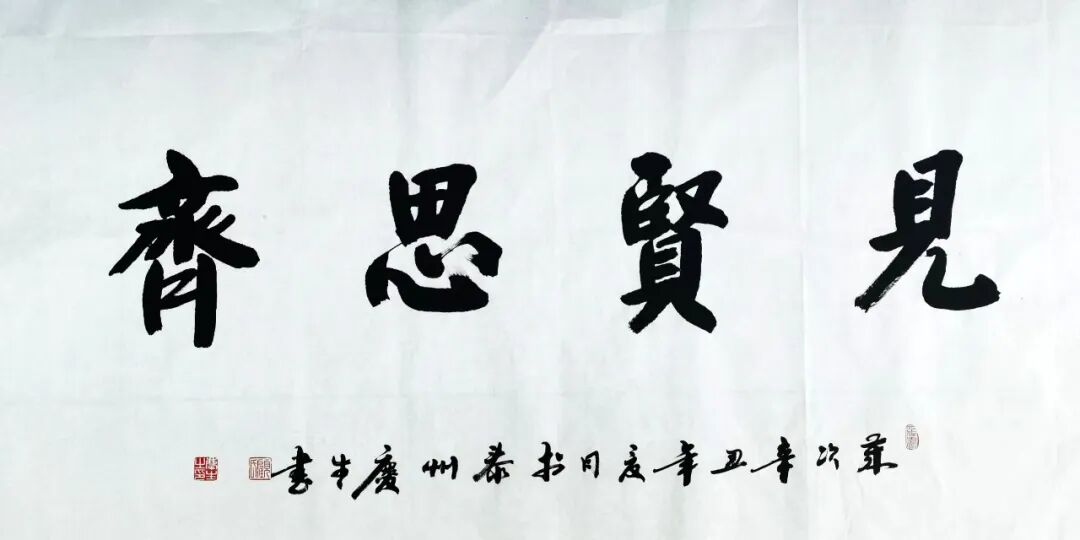 見賢思齊
歲次辛丑年夏日於泰州慶生書